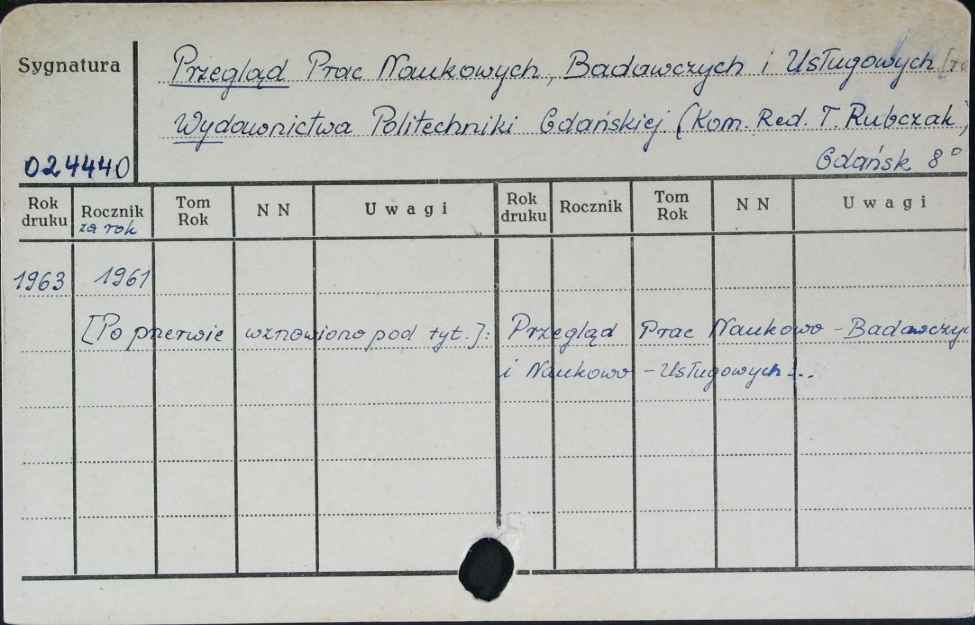 Sygnatura
Przegląd Prac Naukowych, Badawczych i Usługowych
Wydawnictwa Politechniki Gdańskiej (Kom. Red. T. Rubczak)
024440
Gdańsk 8°
Rok druku Rocznik za rok Tom Rok N N Uwagi Rok druku Rocznik Tom Rok N N Uwagi
1963 1961
[Po przerwie wznowiono pod tyt.]: Przegląd Prac Naukowo - Badawczyc
i Naukowo - Usługowych...